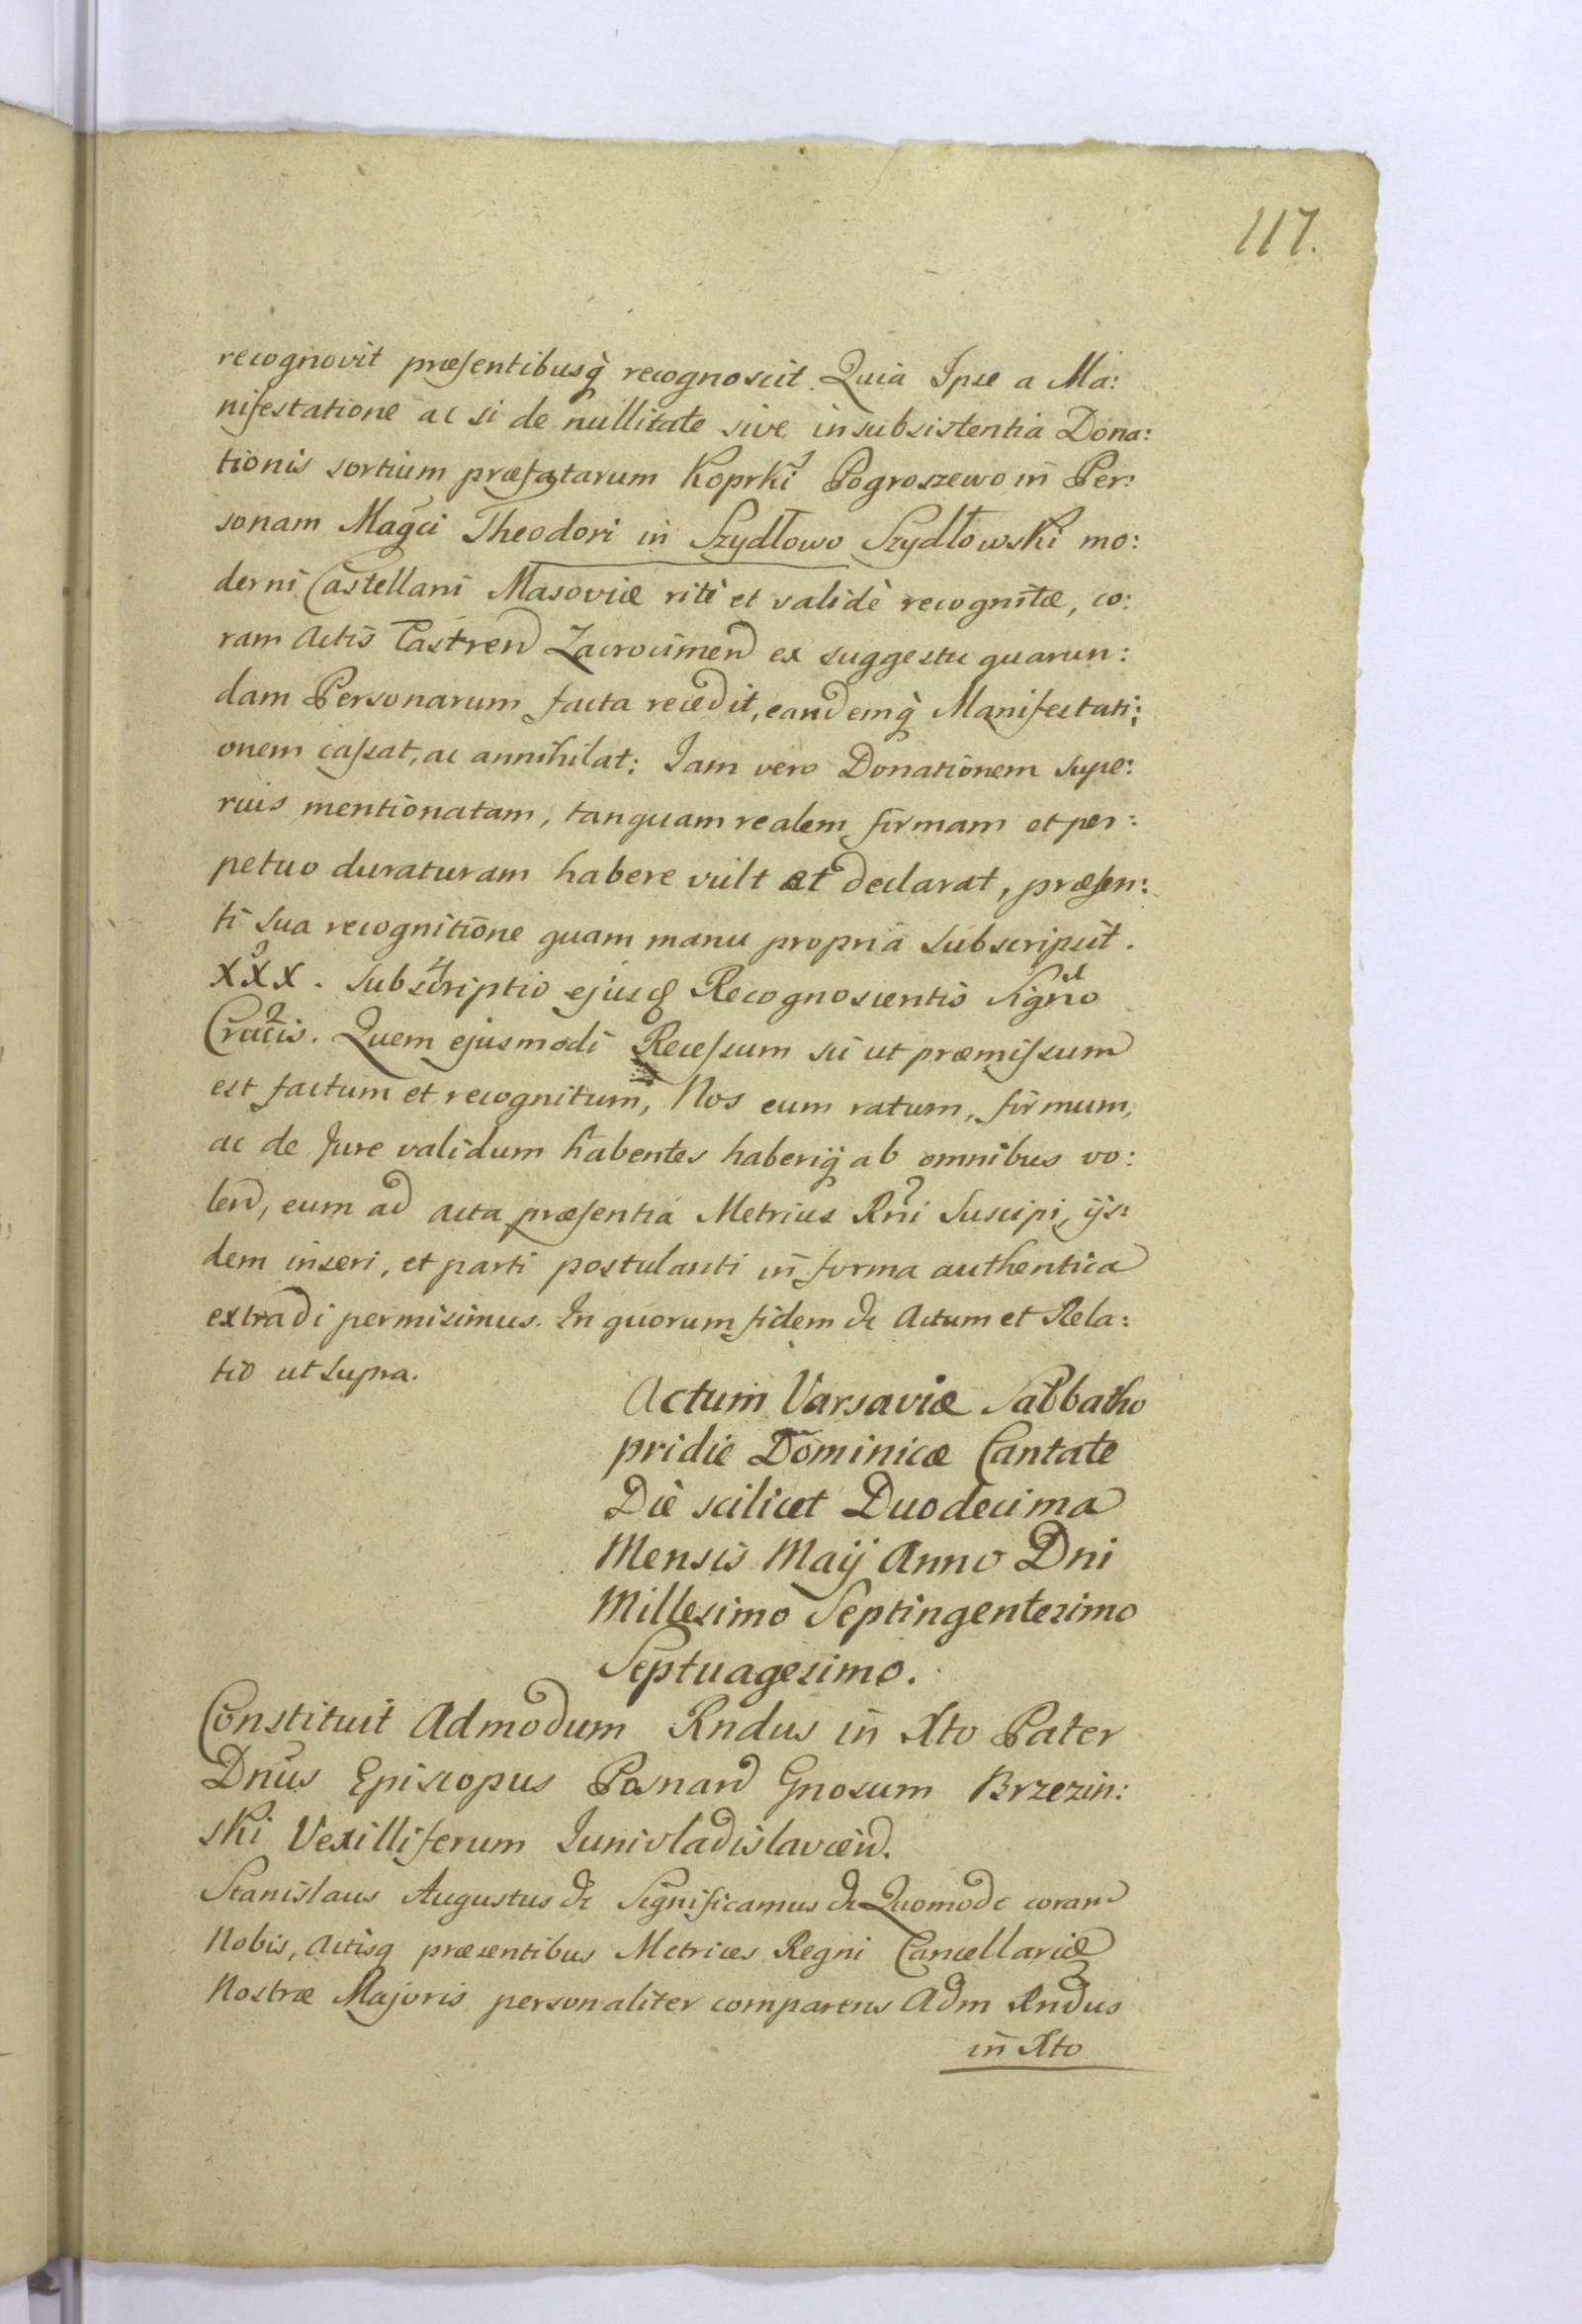 117.
recognovit præsentibusq̀ recognoscit. Quia Ipse a Ma:
nifestatione ac si de nullitate sive insubsistentia Dona:
tionis sortium præfatarum Koprki Pogroszewo in Per:
sonam Magci Theodori in Szydłowo Szydłowski mo:
derni Castellani Masoviæ ritè et validè recognitæ, co:
ram Actis Castren Zacrocimen ex suggestu quarun:
dam Personarum facta recedit, eandemq̀ Manifestati:
onem cassat, ac annihilat: Iam vero Donationem supe:
rius mentionatam, tanquam realem firmam et per:
petuo duraturam habere vult et declarat, præsen:
ti sua recognitione quam manu propria subscripsit.
XXX. Subscriptio ejusd Recognoscentis Signo
Crucis. Quem ejusmodi Recessum sic ut præmissum
est factum et recognitum, Nos eum ratum, firmum,
ac de Jure validum habentes haberiq̀ ab omnibus vo:
len, eum ad acta præsentia Metrices Rni Suscipi, ijs:
dem inseri, et parti postulanti in forma authentica
extradi permisimus. In quorum fidem &c Actum et Rela:
tio ut supra.
Actum Varsaviæ Sabbatho
pridie Dominicæ Cantate
Die scilicet Duodecima
Mensis Maij Anno Dni
Millesimo Septingentesimo
Septuagesimo.
Constituit Admodum Rndus in Xto Pater
Dnus Episcopus Posnan Gnosum Brzezin:
ski Vexilliferum Junivladislavien.
Stanislaus Augustus &c Significamus &c Quomodo coram
Nobis, Actisq præsentibus Metrices Regni Cancellariæ
Nostræ Majoris personaliter comparens Adm Rndus
in Xto